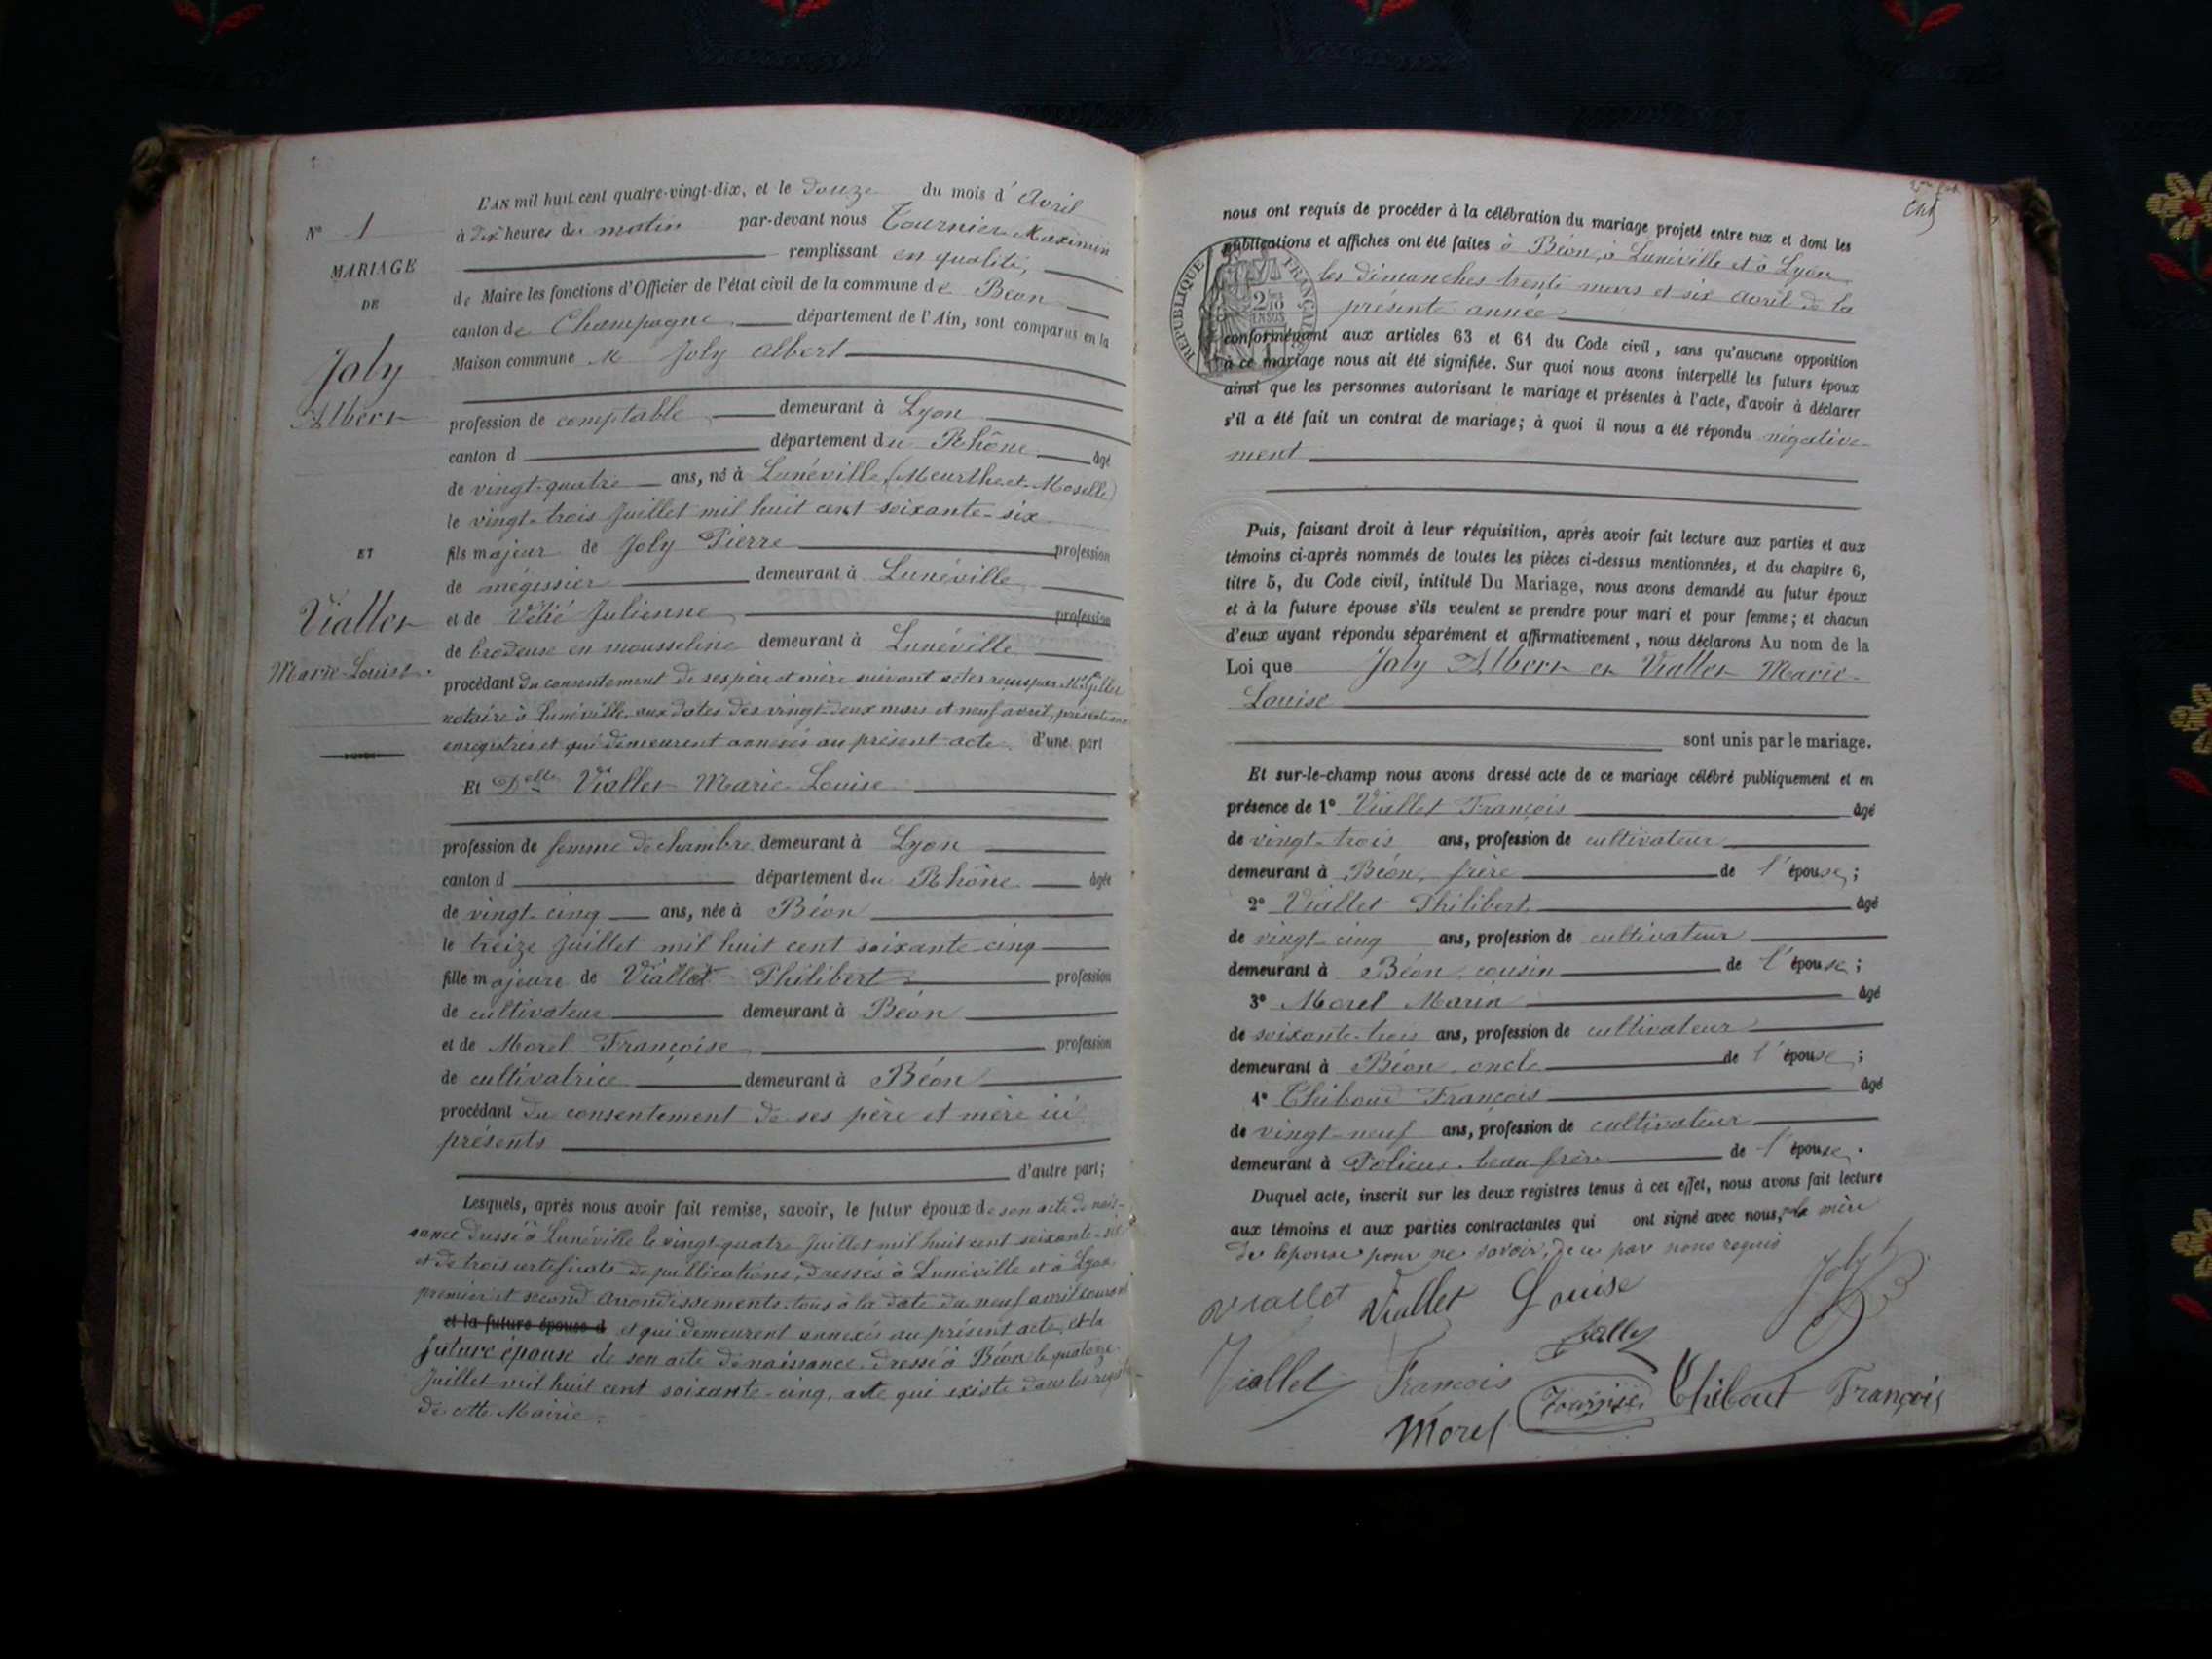 L'AN mil huit cent quatre-vingt-dix, et le douze du mois d'Avril
à dix heures du matin par-devant nous Tournier Maximin
remplissant en qualité,
de Maire les fonctions d'Officier de l'état civil de la commune de Béon
canton de Champagne département de l'Ain, sont comparus en la
Maison commune M Joly Albert
profession de comptable demeurant à Lyon
canton d département du Rhône âgé
de vingt-quatre ans, né à Lunéville (Meurthe et Moselle)
le vingt-trois Juillet mil huit cent soixante-six
fils majeur de Joly Pierre profession
de mégissier demeurant à Lunéville
et de Julienne profession
de brodeuse en mousseline demeurant à Lunéville
procédant du consentement de ses père et mère suivant actes reçus par Me
notaire à Lunéville aux dates des vingt-deux mars et neuf avril,
enregistrés et qui demeurent annexés au présent acte. d'une part
Et Delle Viallet Marie Louise
profession de femme de chambre demeurant à Lyon
canton d département du Rhône âgée
de vingt-cinq ans, née à Béon
le treize Juillet mil huit cent soixante-cinq
fille majeure de Viallet Philibert profession
de cultivateur demeurant à Béon
et de Morel Françoise profession
de cultivatrice demeurant à Béon
procédant du consentement de ses père et mère ici
présents
d'autre part;
Lesquels, après nous avoir fait remise, savoir, le futur époux de son acte de nais-
sance dressé à Lunéville le vingt-quatre Juillet mil huit cent soixante-six
et de trois certificats de publications, dressés à Lunéville et à Lyon
premier et second arrondissements, tous à la date du neuf avril courant
et la future épouse d et qui demeurent annexés au présent acte, et la
future épouse de son acte de naissance dressé à Béon le quatorze
Juillet mil huit cent soixante-cinq, acte qui existe dans les
de cette Mairie.
N° 1
MARIAGE
DE
Joly
Albert
ET
Viallet
Marie-Louise.
nous ont requis de procéder à la célébration du mariage projeté entre eux et dont les
publications et affiches ont été faites à Béon, à Lunéville et à Lyon
les dimanches trente mars et six avril de la
présente année
conformément aux articles 63 et 64 du Code civil, sans qu'aucune opposition
à ce mariage nous ait été signifiée. Sur quoi nous avons interpellé les futurs époux
ainsi que les personnes autorisant le mariage et présentes à l'acte, d'avoir à déclarer
s'il a été fait un contrat de mariage; à quoi il nous a été répondu négative-
ment
RÉPUBLIQUE FRANÇAISE
2/10 EN SUS
Puis, faisant droit à leur réquisition, après avoir fait lecture aux parties et aux
témoins ci-après nommés de toutes les pièces ci-dessus mentionnées, et du chapitre 6,
titre 5, du Code civil, intitulé Du Mariage, nous avons demandé au futur époux
et à la future épouse s'ils veulent se prendre pour mari et pour femme; et chacun
d'eux ayant répondu séparément et affirmativement, nous déclarons Au nom de la
Loi que Joly Albert et Viallet Marie-
Louise
sont unis par le mariage.
Et sur-le-champ nous avons dressé acte de ce mariage célébré publiquement et en
présence de 1° Viallet François âgé
de vingt-trois ans, profession de cultivateur
demeurant à Béon, frère de l'épouse;
2° Viallet Philibert âgé
de vingt-cinq ans, profession de cultivateur
demeurant à Béon, cousin de l'épouse;
3° Morel Marin âgé
de soixante-trois ans, profession de cultivateur
demeurant à Béon, oncle de l'épouse;
4° Thiboud François âgé
de vingt-neuf ans, profession de cultivateur
demeurant à Polieu, beau frère de l'épouse.
Duquel acte, inscrit sur les deux registres tenus à cet effet, nous avons fait lecture
aux témoins et aux parties contractantes qui ont signé avec nous, la mère
de l'épouse pour ne savoir, de ce par nous requis
Viallet Viallet Louise Joly
Viallet François
Morel Tournier Thibout François